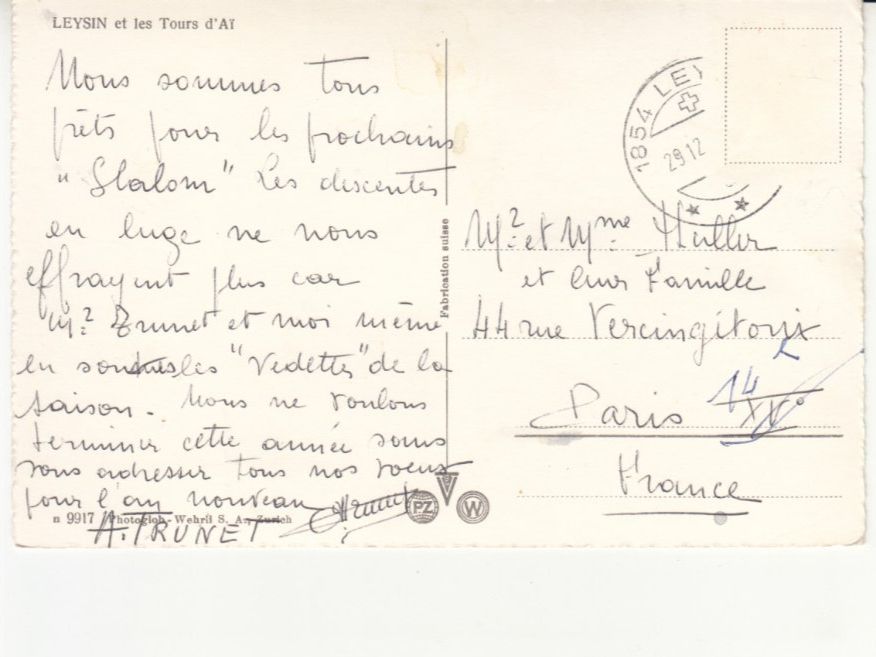 LEYSIN et les Tours d'Aï
Nous sommes tous
prêts pour les prochains
"Slalom" Les descentes
en luge ne nous
effrayent plus car
Mr Trunet et moi même
en sommes les "Vedettes" de la
saison. Nous ne voulons
terminer cette année sans
vous adresser tous nos voeux
pour l'an nouveau
A. TRUNET
n 9917 Photoglob-Wehrli S. A., Zurich
Fabrication suisse
PZ
W
1854 LEY
29.12
Mr. et Mme. Huller
et leur Famille
44 rue Vercingétorix
Paris XVe
14e
France